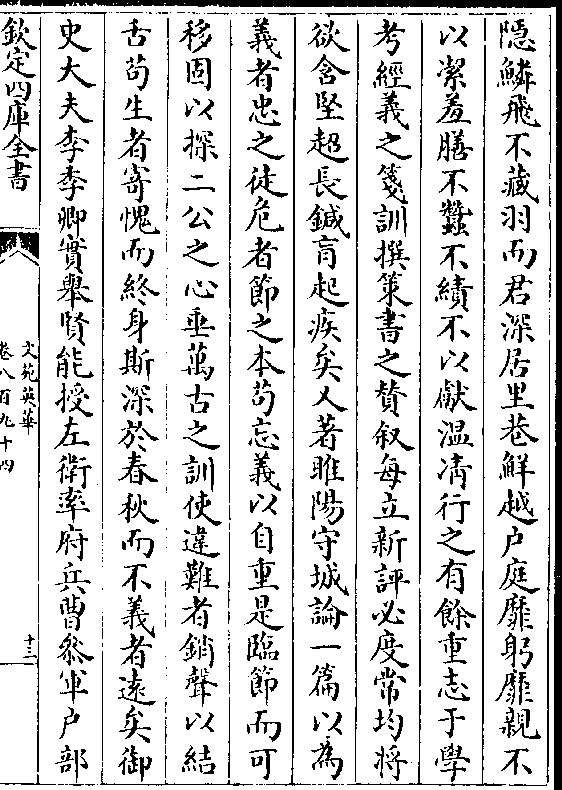 隐鱗飛不藏羽而君深居里巷鮮越户庭靡躬靡親不
以潔羞膳不蠶不績不以獻温凊行之有餘重志于學
考經義之箋訓撰策書之賛叙每立新評必度常均將
欲含堅超長鍼肓起疾矣又著睢陽守城論一篇以為
義者忠之徒危者節之本茍忘義以自重是臨節而可
移固以探二公之心垂萬古之訓使違難者銷聲以結
舌茍生者寄愧而終身斯深於春秋而不義者逺矣御
史大夫李季卿實舉賢能授左衛率府兵曹叅軍户部
欽定四庫全書
文苑英華
卷八百九十四
十三